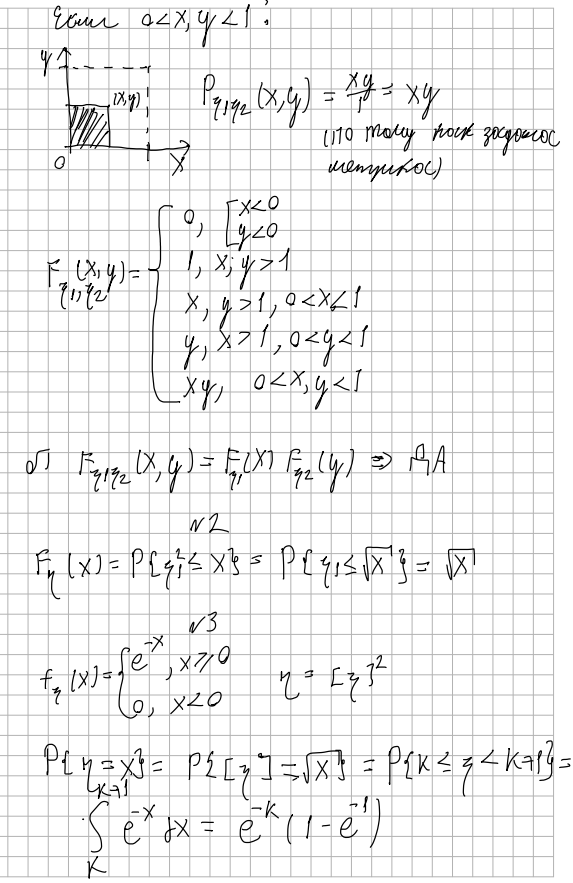 Если 0<x,y<1:
y
(x,y)
0
x
P_{ξ1ξ2}(x,y) = xy/1 = xy
(по тому
F_{ξ1,ξ2}(x,y) = { 0, [ x<0
y<0
1, x;y>1
x, y>1, 0<x≤1
y, x>1, 0<y<1
xy, 0<x,y<1
б) F_{ξ1ξ2}(x,y) = F_{ξ1}(x) F_{ξ2}(y) ⇒ ДА
№2
F_η(x) = P{ξ1² ≤ x} = P{ξ1 ≤ √x} = √x
№3
f_ξ(x) = { e^{-x}, x⩾0
0, x<0
η = [ξ]²
P{η=x} = P{[ξ]=√x} = P{k ≤ ξ < k+1} =
∫_k^{k+1} e^{-x} dx = e^{-k}(1-e^{-1})